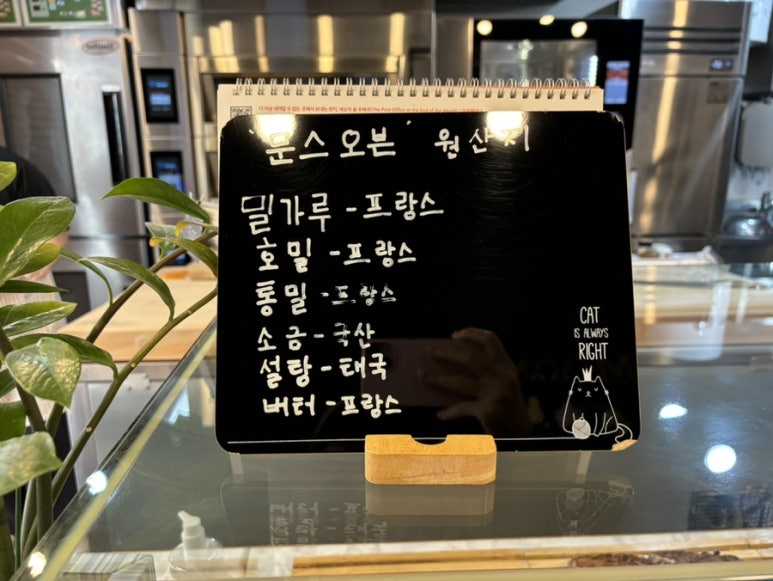 '문스오븐' 원산지
밀가루 - 프랑스
호밀 - 프랑스
통밀 - 프랑스
소금 - 국산
설탕 - 태국
버터 - 프랑스
CAT
IS ALWAYS
RIGHT